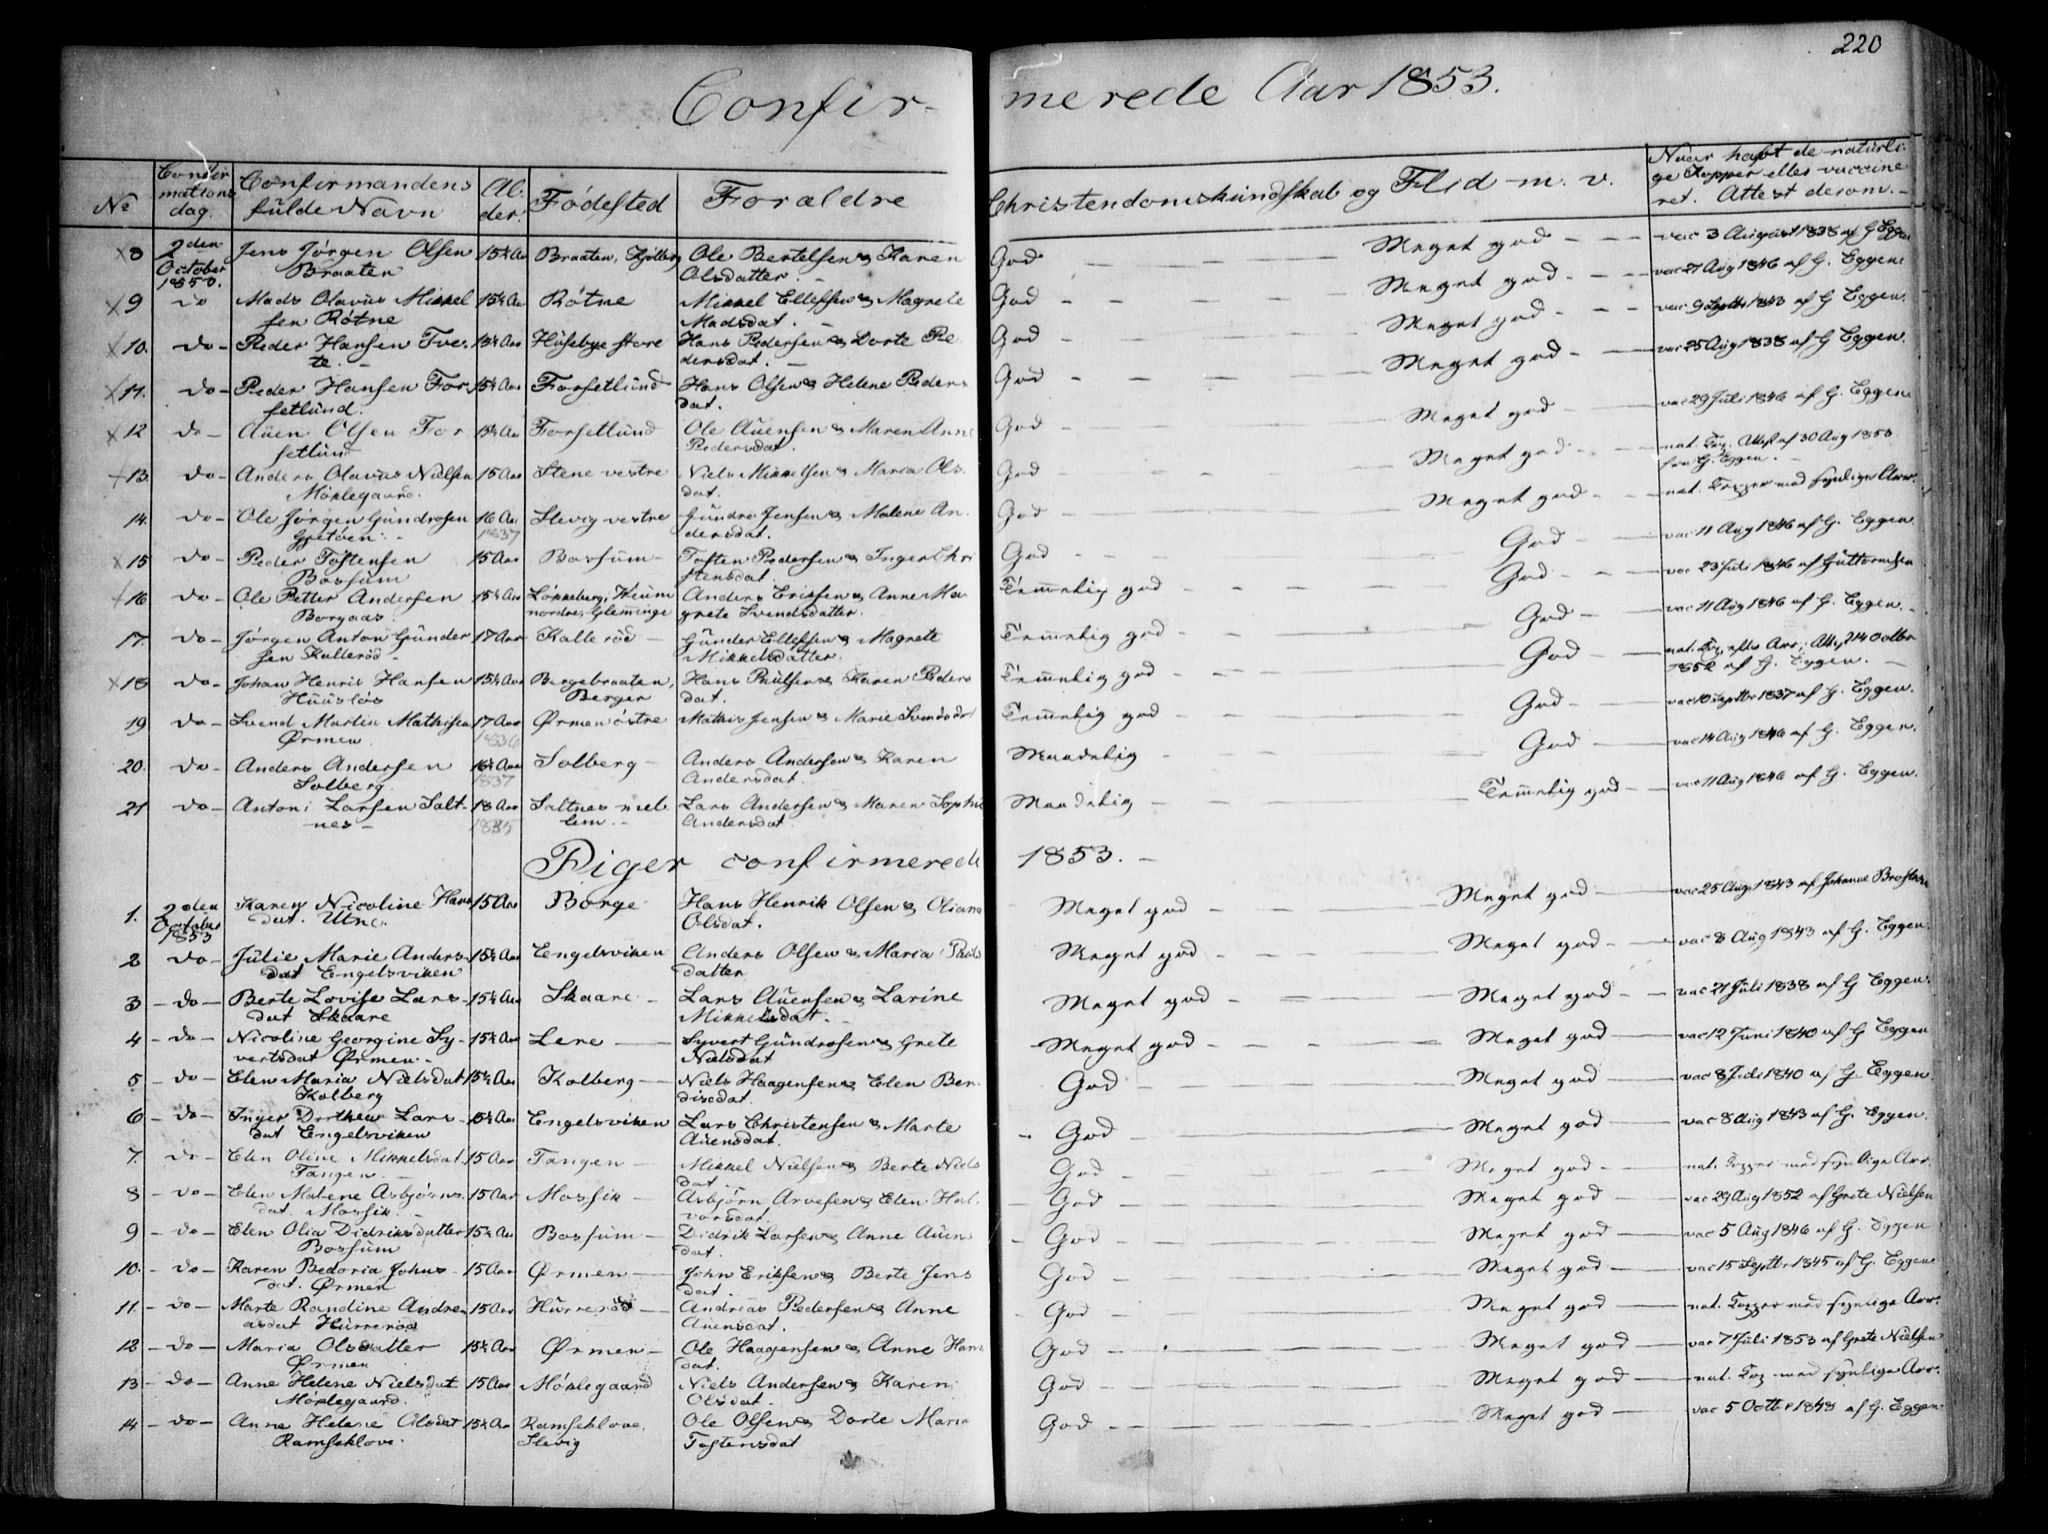 220
Confirmerede Aar 1853.
No Confirmations dag. Confirmandens fulde Navn Alder. Födested Foraldre Christendomskundskab og Flid m. v. Naar haft de naturlige Kopper eller vaccineret. Attest derom.
8 2den October 1853. Jens Jörgen Olsen Braaten 15½ Aar Braaten, Ole Bertelsen & Karen Olsdatter God Meget god vac 3 August 1838 af G Eggen
9 do Mads Olavus Mikkelsen Rötne Aar Rötne Mikkel Ellefsen & Magrete Madsdat. God Meget god vac 27 Aug 1846 af G. Eggen
10. do Peder Hansen Tvete. Aar Huusebye store Hans Pedersen & Dorte Pedersdat. God Meget god vac 9 Septbr 1843 af G. Eggen.
11. do Peder Hansen Forsetlund. Aar Forsetlund Hans Olsen & Helene Pedersdat. God Meget god vac 25 Aug 1838 af G. Eggen.
12 do Auen Olsen Forsetlund Aar Forsetlund Ole Auensen & Maren Anne Pedersdat. God Meget god vac 29 Juli 1846 af G. Eggen
13. do Anders Olavus Nielsen Mörlegaard. 15 Aar Stene vestre Niels Mikkelsen & Maria Olsdat. God Meget god nat. Kop. Attest af 30 Aug 1853 fra G. Eggen.
14. do Ole Jörgen Gundrosen 16 Aar 1837 Slevig vestre Gundro Jensen & Malene Andersdat. God Meget god nat. Kopper med synlige Arr.
15 do Peder Tostensen Bossum 15 Aar Bossum Tosten Pedersen & Inger Christensdat. God God vac 11 Aug 1846 af G. Eggen
16 do Ole Petter Andersen Borgaas. Aar Lökkeberg, Kium nordre, Glemminge Anders Eriksen & Anne Magrete Svendsdatter. Temmelig god God vac 23 Juli 1846 af Guttormsen
17. do Jörgen Anton Gundersen Kalleröd 17 Aar Kalleröd Gunder Ellefsen & Magrete Mikkelsdatter. Temmelig god God vac 11 Aug 1846 af G. Eggen.
18 do Johan Henrik Hansen Huuslös Aar Bergebraaten, Berger Hans Paulsen & Karen Pedersdat. Temmelig god God nat. Kop. efter Arr; Att. 14 Octbr 1852 af G. Eggen.
19 do Svend Martin Mathisen Ørmen 17 Aar 1836 Ørmen östre Mathis Jensen & Marie Svendsdat Temmelig god God vac 10 Septbr 1837 af G. Eggen.
20. do Anders Andersen Solberg. Aar 1837 Solberg Anders Andersen & Karen Andersdat. Maadelig God vac 14 Aug 1846 af G. Eggen.
21 do Antoni Larsen Saltnes 18 Aar 1835 Saltnes mellem. Lars Andersen & Maren Sophie Andersdat. Maadelig Temmelig god vac 11 Aug 1846 af G. Eggen.
Piger confirmerede 1853.
1. 2den October 1853 Karen Nicoline Hansdat. Utne. 15 Aar Borge Hans Henrik Olsen & Oliana Olsdat. Meget god Meget god vac 25 Aug 1843 af Johanne
2 do Julie Marie Andersdat Engelsviken Aar Engelsviken Anders Olsen & Maria Paulsdatter Meget god Meget god vac 8 Aug 1843 af G. Eggen.
3 do Berte Lovise Larsdat Skaare Aar Skaare Lars Auensen & Larine Mikkelsdat. Meget god Meget god vac 21 Juli 1838 af G. Eggen.
4 do Nicoline Georgine Syvertsdat Ørmen Aar Lere Syvert Gundrosen & Grete Nielsdat Meget god Meget god vac 12 Juni 1840 af G Eggen
5 do Elen Maria Nielsdat Kolberg Aar Kolberg Niels Haagensen & Elen Berdisdat. God Meget god vac 8 Juli 1840 af G. Eggen
6 do Inger Dorthea Larsdat Engelsviken Aar Engelsviken Lars Christensen & Marte Auensdat. God Meget god vac 8 Aug 1843 af G. Eggen
7. do Elen Oline Mikkelsdat. Tangen 15 Aar Tangen Mikkel Nielsen & Berte Nielsdat. God Meget god nat. Kopper med synlige Arr.
8 do Elen Malene Asbjörnsdat. Mossik. 15 Aar Mossik Asbjörn Arvesen & Elen Halvorsdat. God Meget god vac 29 Aug 1852 af Grete Nielsen
9 do Elen Olia Didriksdatter Bossum Aar Bossum Didrik Larsen & Anne Auensdat. God Meget god vac 5 Aug 1846 af G. Eggen
10. do Karen Bedoria Johnsdat. Ørmen 15 Aar Ørmen John Eriksen & Berte Jensdat. God Meget god vac 15 Septbr 1845 af G. Eggen
11. do Marte Randine Andreasdat Hurreröd 15 Aar Hurreröd Andreas Pedersen & Anne Auensdat. God Meget god nat. Kopper med synlige Arr.
12 do Maria Olsdatter Ørmen Aar Ørmen Ole Haagensen & Anne Hansdat. God Meget god vac 7 Juli 1853 af Grete Nielsen
13 do Anne Helene Nielsdat Mörlegaard. 15 Aar Mörlegaard Niels Andersen & Karen Olsdat. God Meget god nat. Kop med synlige Arr.
14 do Anne Helene Olsdat Ramseklove. Aar Ramseklove. Slevig Ole Olsen & Dorte Maria Tostensdat God Meget god vac 5 Octbr 1848 af G. Eggen